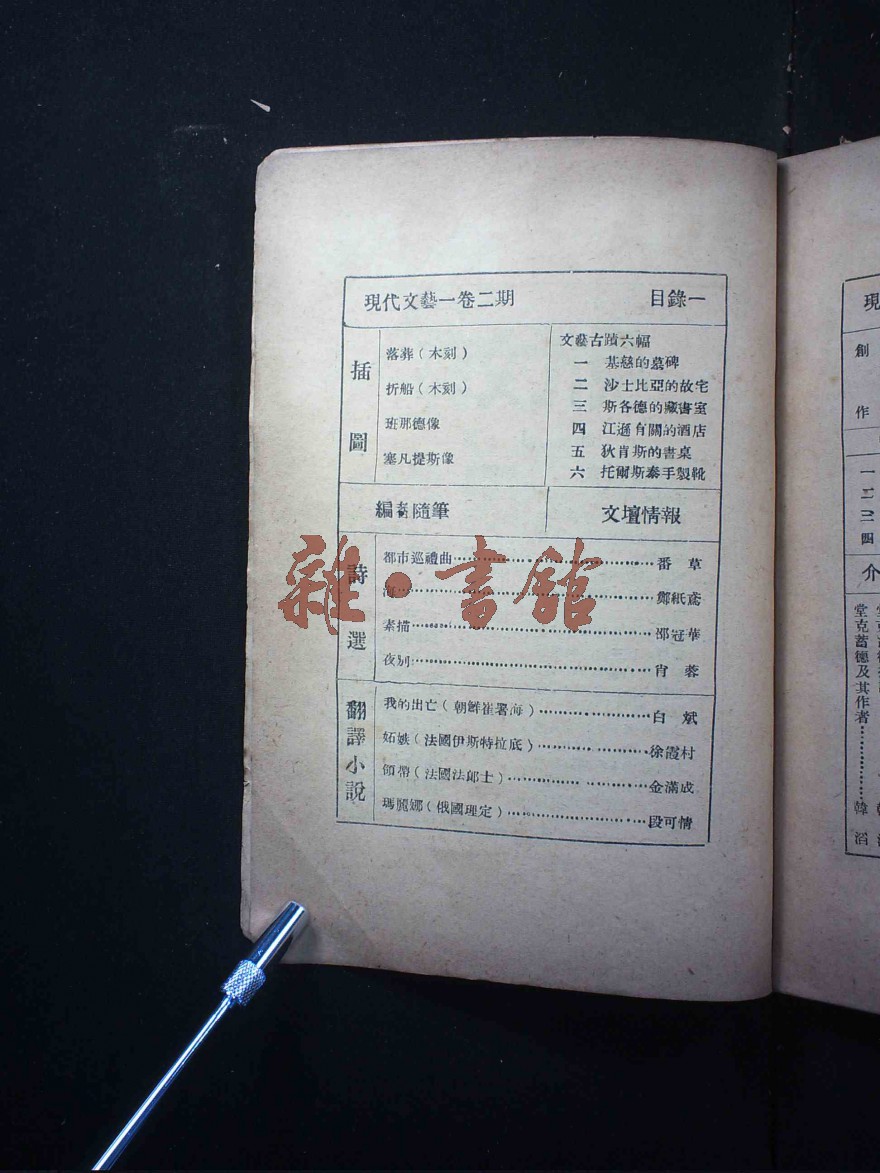 現代文藝一卷二期 目錄一
插圖
落葬（木刻）
折船（木刻）
班那德像
塞凡提斯像
文藝古蹟六幅
一 基慈的墓碑
二 沙士比亞的故宅
三 斯各德的藏書室
四 江遜有關的酒店
五 狄肯斯的書桌
六 托爾斯泰手製靴
編者隨筆
文壇情報
詩選
都市巡禮曲……番草
海……鄭紙鳶
素描……邵冠華
夜別……肖蓉
翻譯小說
我的出亡（朝鮮崔署海）……白斌
妬嫉（法國伊斯特拉底）……徐霞村
領帶（法國法郞士）……金滿成
瑪麗娜（俄國理定）……段可情
雜·書館
現
創
作
一
二
三
四
介
堂克蓄德及其作者……韓滔